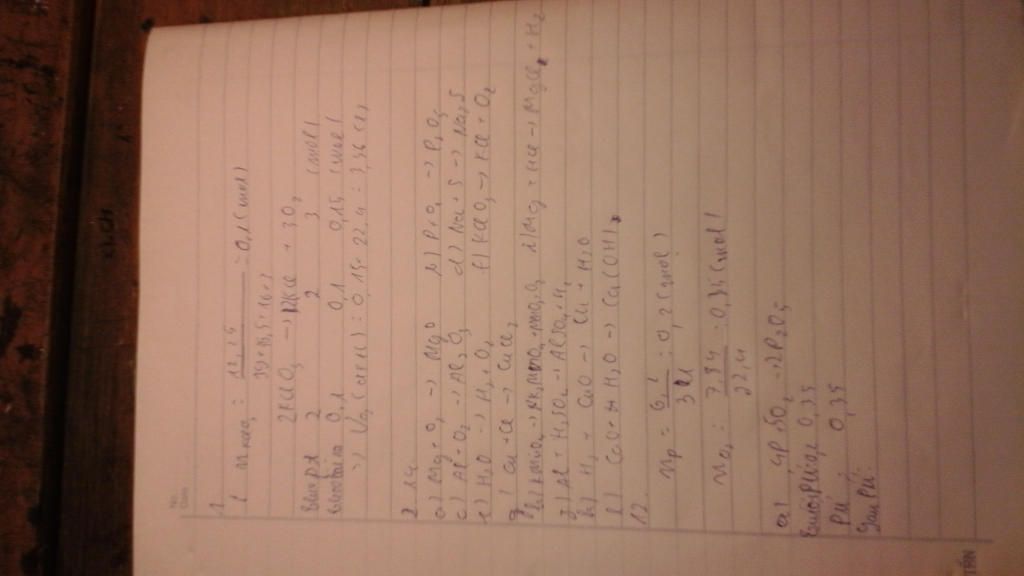 1
12,25
39+35,5+16.3
= 0,1 (mol)
2KClO3 → 2KCl + 3O2
2 2 3 (mol)
0,1 0,1 0,15 (mol)
=> VO2 (đktc) = 0,15. 22,4 = 3,36 (l)
2.
a) Mg + O2 → MgO b) P + O2 → P2O5
c) Al + O2 → Al2O3 d) Na + S → Na2S
e) H2O → H2 + O2 f) KClO3 → KCl + O2
g) Cu + Cl2 → CuCl2
h) KMnO4 → K2MnO4 + MnO2 + O2 i) Mg + HCl → MgCl2 + H2
j) Al + H2SO4 → + H2
k) H2 + CuO → Cu + H2O
l) CaO + H2O → Ca(OH)2
12.
nP = 6,2 / 31 = 0,2 (mol)
nO2 = 7,84 / 22,4 = 0,35 (mol)
a) 4P 5O2 → 2P2O5
0,35
PU: 0,35
Sau PU:
TẤN